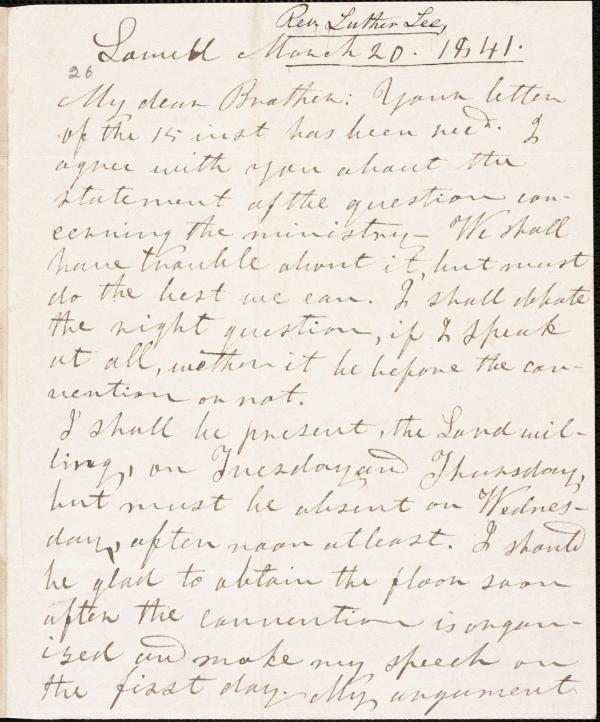 Rev. Luther Lee,
Lowell March 20. 1841.
26
My dear Brother: Your letter
of the 15 inst has been recd. I
agree with you about the
statement of the question con-
cerning the ministry— We shall
have trouble about it, but must
do the best we can. I shall debate
the right question, if I speak
at all, wether it be before the con-
vention or not.
I shall be present, the Lord wil-
ling, on Tuesday and Thursday,
but must be absent on Wednes-
day, after noon at least. I should
be glad to obtain the floor soon
after the convention is organ-
ized and make my speech on
the first day. My argument